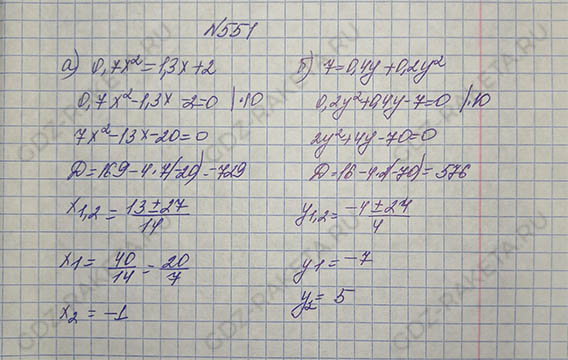 N551
а) 0,7x² = 1,3x + 2
0,7x² - 1,3x - 2 = 0 | ·10
7x² - 13x - 20 = 0
D = 169 - 4·7(-20) = 729
x1,2 = (13 ± 27)/14
x1 = 40/14 = 20/7
x2 = -1
б) 7 = 0,4y + 0,2y²
0,2y² + 0,4y - 7 = 0 | ·10
2y² + 4y - 70 = 0
D = 16 - 4·2(-70) = 576
y1,2 = (-4 ± 24)/4
y1 = -7
y2 = 5
GDZ-RAKETA.RU